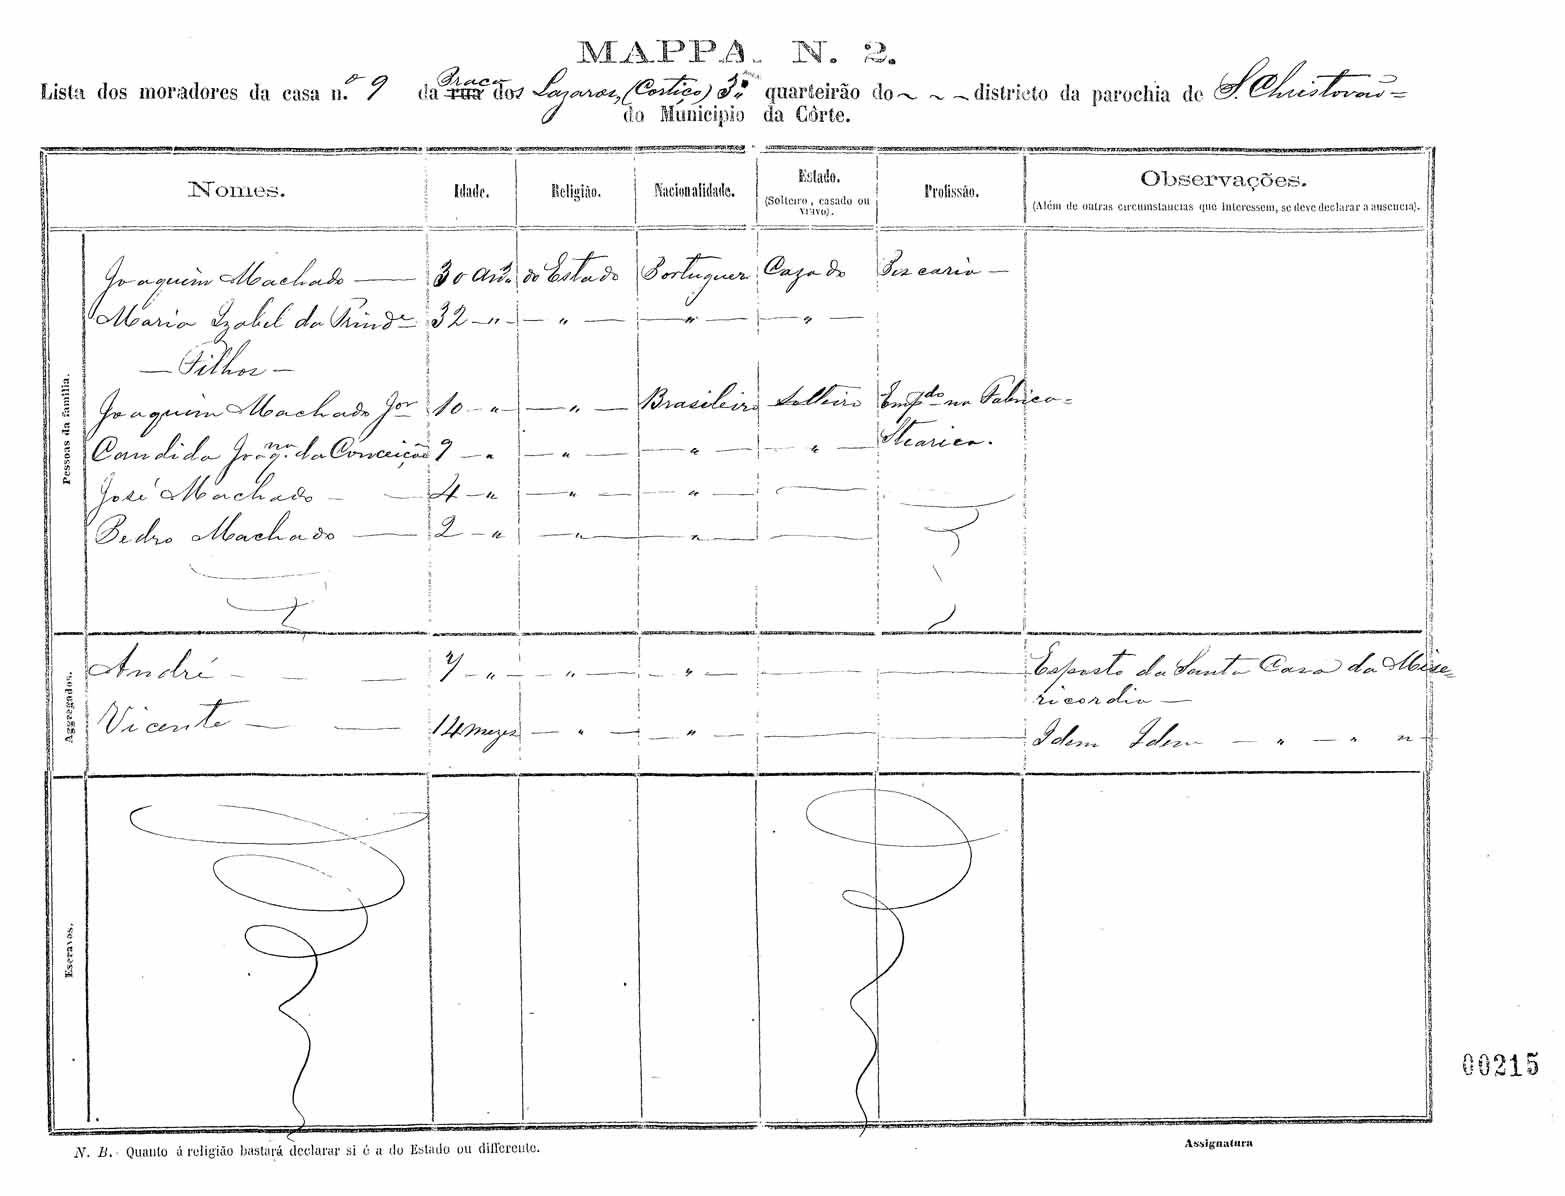 MAPPA N. 2.
Lista dos moradores da casa n.º 9 da Praça rua dos Lazaros, (Cortiço) 3º quarteirão do ~ ~ ~ districto da parochia de S. Christovão =
do Município da Côrte.
Nomes. Idade. Religião. Nacionalidade. Estado. Profissão. Observações.
(Solteiro, casado ou viuvo). (Além de outras circumstancias que interessem, se deve declarar a ausencia).
Pessoas da familia.
Joaquim Machado — 30 an.s do Estado Portuguez Cazado Pescaria —
Maria Izabel da Trind.e 32 — " — — " — — " — — " —
— Filhos —
Joaquim Machado J.or 10 — " — " — Brasileiro Solteiro Emp.do na Fabrica =
Candida Joaq.na da Conceição 9 — " — " — — " — — " — Stearica.
José Machado — — 4 — " — " — — " — —
Pedro Machado — 2 — " — " — — " — —
Aggregados.
André — — 7 — " — — " — — " — — — Esposto da Santa Casa da Mise=
ricordia —
Vicente — — 14 mezes — " — — " — — — Idem Idem — " — " "
Escravos.
00215
N. B. Quanto á religião bastará declarar si é a do Estado ou differente.
Assignatura